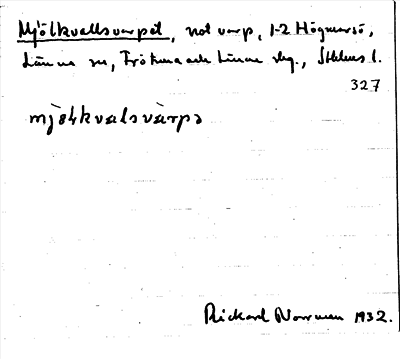 Mjölkvallsvarpet, notvarp, 1-2 Högmarsö,
Länna sn, Frötuna och Länna skg., Sthlms l.
327
mjö̀lkvalsvàrpə
Rickard Norrman 1932.